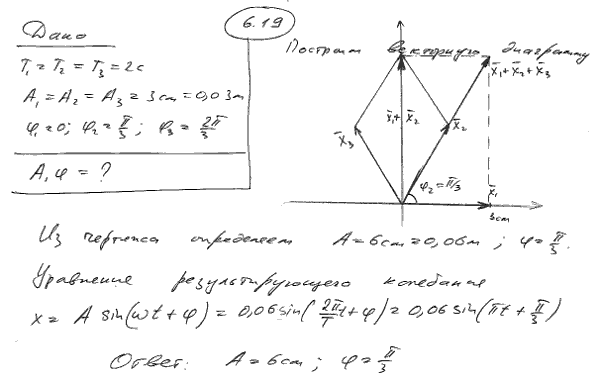 6.19
Дано
T₁ = T₂ = T₃ = 2с
A₁ = A₂ = A₃ = 3cm = 0,03м
φ₁ = 0; φ₂ = π/3; φ₃ = 2π/3
A, φ = ?
Построим векторную диаграмму
x̄₁ + x̄₂ + x̄₃
x̄₁ + x̄₂
x̄₂
x̄₃
φ₂ = π/3
x̄₁
3cm
Из чертежа определяем A = 6cm = 0,06м; φ = π/3.
Уравнение результирующего колебания
x = A sin(ωt + φ) = 0,06 sin(2π/T t + φ) = 0,06 sin(πt + π/3)
Ответ: A = 6cm; φ = π/3